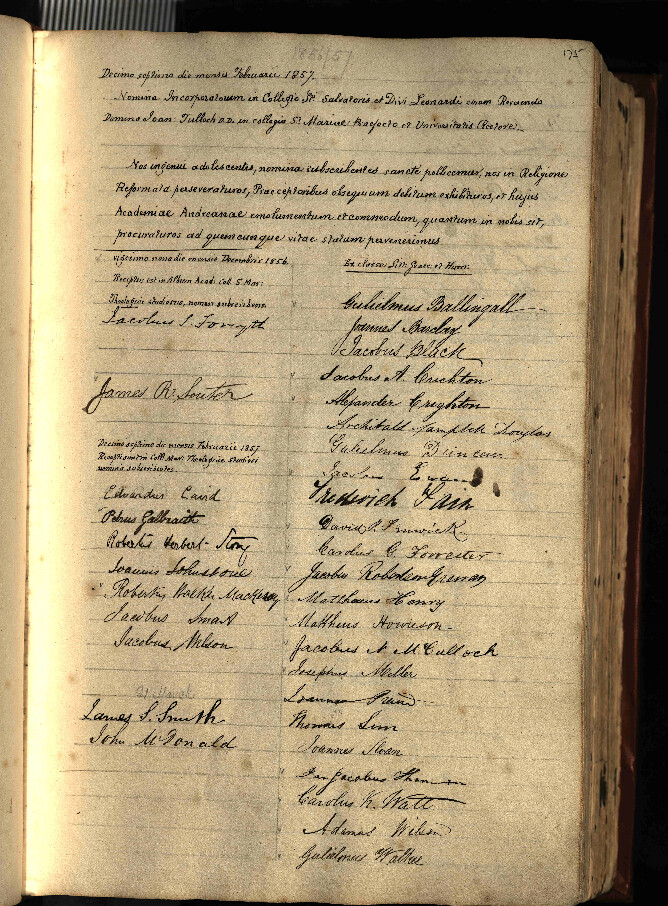 1856/57
175
Decimo septimo die mensis Februarii 1857.
Nomina Incorporatorum in Collegio Sti Salvatoris et Divi Leonardi coram Reverendo
Domino Joan: Tulloch D.D. in collegio Stae Mariae Praefecto et Universitatis Rectore.
Nos ingenui adolescentes, nomina subscribentes sancte pollicemur, nos in Religione
Reformata perseveraturos, Praeceptoribus obsequium debitum exhibituros, et hujus
Academiae Andreanae emolumentum et commodum, quantum in nobis sit,
procuraturos ad quemcunque vitae statum pervenerimus
vigesimo nono die mensis Decembris 1856.
Receptus est in Album Acad. Coll. S. Mar:
Theologiae studiosus, nomen subscribens.
Jacobus S. Forsyth
James R. Souter
Decimo septimo die mensis Februarii 1857
Recepti sunt in Coll. Mar: Theologiae studiosi
nomina subscribentes.
Eduardus Caird
Petrus Galbraith
Robertus Herbert Story
Joannes Johnstone
Robertus Walker Mackersy
Jacobus Smart
Jacobus Wilson
21 March
James S. Smith
John McDonald
Ex classe Litt. Graec. et Human.
Gulielmus Ballingall
Joannes Barclay
Jacobus Black
Jacobus A. Crichton
Alexander Creighton
Archibald Douglas
Gulielmus Duncan
Jacobus
Frederick
David P. Fenwick
Carolus G. Forrester
Jacobus Robertson
Matthaeus Henry
Mattheus Howieson
Jacobus N. McCulloch
Josephus Miller
Joannes
Thomas Sim
Joannes Sloan
Jacobus
Carolus K. Watt
Adamus Wilson
Gulielmus Walker